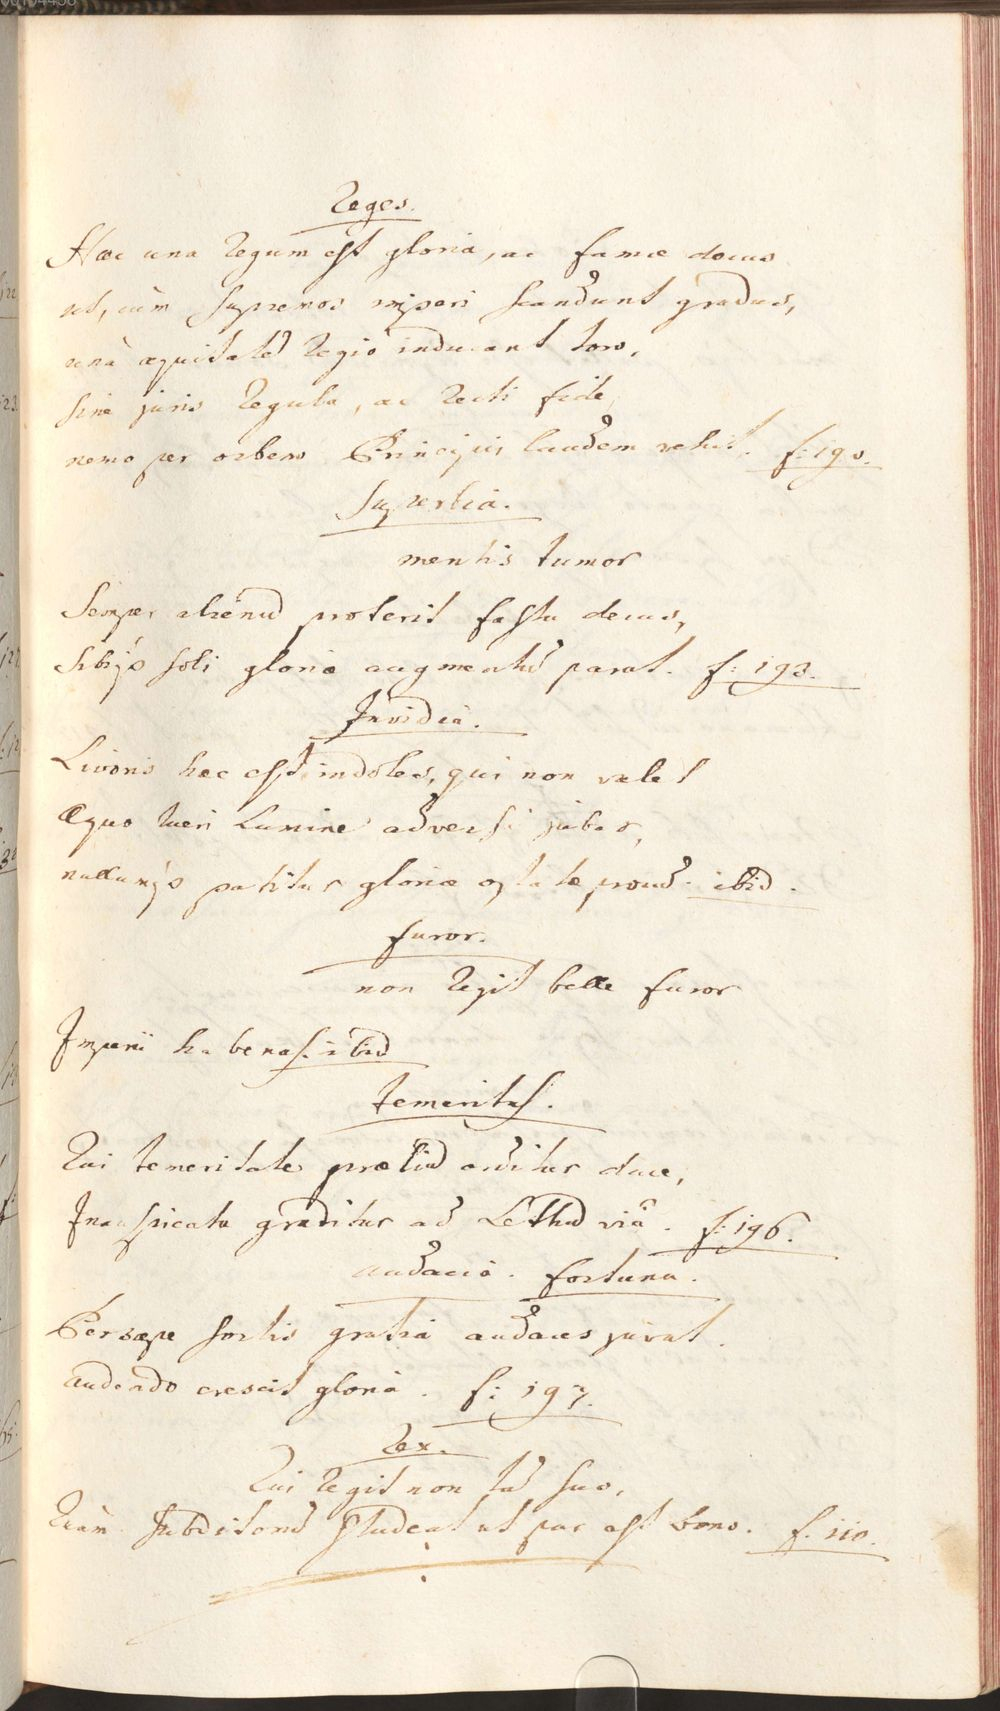 Reges.
Hæc una Regum est gloria, ac famæ decus
ut, cùm supremos imperi scandunt gradus,
unà æquitatē Regio inducant toro,
sine juris Regula, ac Recti fide
nemo per orbem Principis laudem vehit. f: 190.
Superbia.
mentis tumor
Semper alienū proterit fastu decus,
sibiqꝫ soli gloriæ augmentū parat. f: 193.
Invidia.
Livoris hæc est indoles, qui non valet
Æquo tueri Lumine adversi jubar,
nullamqꝫ patitur gloriæ ibid.
furor.
non Regit belle furor
Imperii habenas. ibid
Temeritas.
Qui temeritate præliū orditur duce,
Inauspicata graditur ad Lethū viā. f: 196.
audacia. fortuna.
Persæpe sortis gratia audaces juvat.
audendo crescit gloria. f: 197.
Rex.
Qui Regit non tā suo,
Quàm subditorū studeat ut par est bono. f. 110.